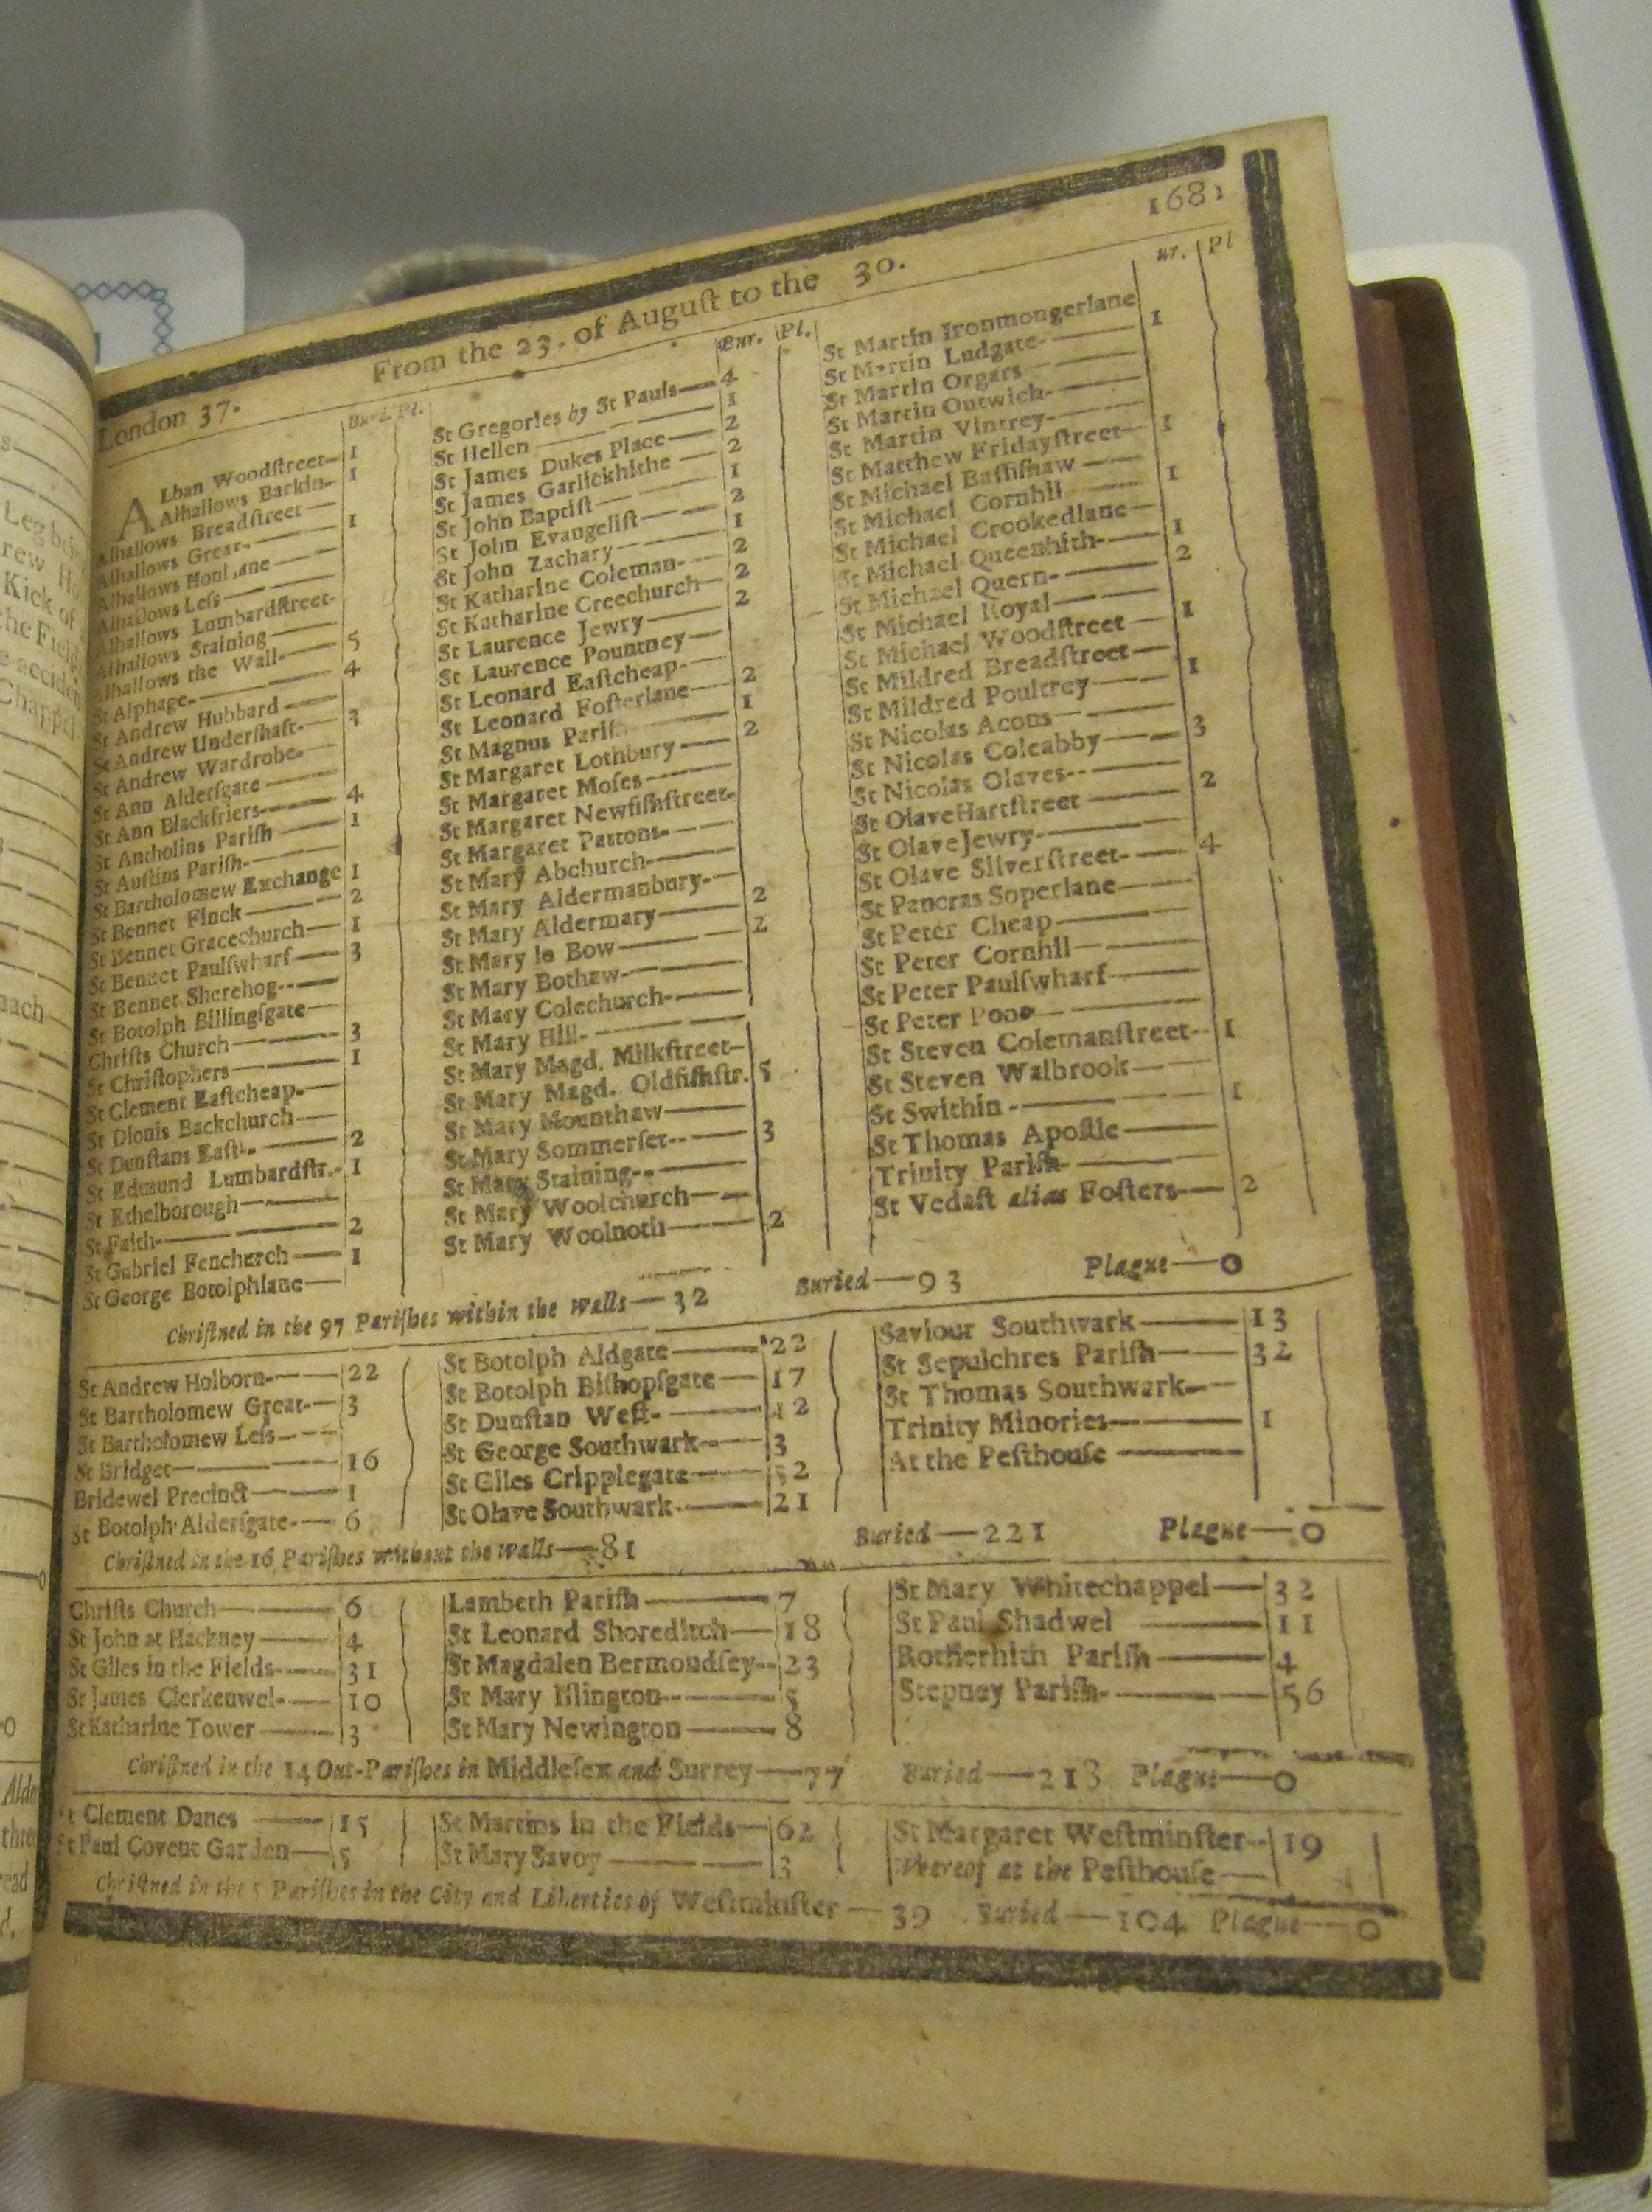 1681
From the 23. of Auguſt to the 30.
London 37.
Buri. Pl.
ALban Woodſtreet— 1
Alhallows Barkin- 1
Alhallows Breadſtreet —
Alhallows Great- — 1
Alhallows Honi ane —
Alhallows Leſs —
Alhallows Lumbardſtreet-
Alhallows Staining —
Alhallows the Wall- — 5
St Alphage- — 4
St Andrew Hubbard —
St Andrew Underſhaft- — 3
St Andrew Wardrobe-
St Ann Alderſgate —
St Ann Blackfriers- — 4
St Antholins Pariſh — 1
St Auſtins Pariſh- —
St Bartholomew Exchange 1
St Bennet Finck — 2
St Bennet Gracechurch — 1
St Bennet Paulſwharf — 3
St Bennet Sherehog- —
St Botolph Billingſgate —
Chriſts Church — 3
St Chriſtophers — 1
St Clement Eaſtcheap- —
St Dionis Backchurch —
St Dunſtans Eaſt- — 2
St Edmund Lumbardſtr.- 1
St Ethelborough —
St Faith — 2
St Gabriel Fenchurch — 1
St George Botolphlane —
Bur. Pl.
St Gregories by St Pauls — 4
St Hellen — 1
St James Dukes Place — 2
St James Garlickhithe — 2
St John Baptiſt — 1
St John Evangeliſt — 2
St John Zachary — 1
St Katharine Coleman- — 2
St Katharine Creechurch — 2
St Laurence Jewry — 2
St Laurence Pountney —
St Leonard Eaſtcheap- —
St Leonard Foſterlane — 2
St Magnus Pariſh — 1
St Margaret Lothbury — 2
St Margaret Moſes —
St Margaret Newfiſhſtreet-
St Margaret Pattons- —
St Mary Abchurch- —
St Mary Aldermanbury- — 2
St Mary Aldermary — 2
St Mary le Bow —
St Mary Bothaw- —
St Mary Colechurch- —
St Mary Hill- —
St Mary Magd. Milkſtreet —
St Mary Magd. Oldfiſhſtr. 5
St Mary Mounthaw —
St Mary Sommerſet- — 3
St Mary Staining- —
St Mary Woolchurch —
St Mary Woolnoth — 2
ur. Pl
St Martin Ironmongerlane
St Martin Ludgate- — 1
St Martin Orgars —
St Martin Outwich- —
St Martin Vintrey- —
St Matthew Fridayſtreet — 1
St Michael Baſſiſhaw —
St Michael Cornhil — 1
St Michael Crookedlane —
St Michael Queenhith- — 1
St Michael Quern- — 2
St Michael Royal —
St Michael Woodſtreet — 1
St Mildred Breadſtreet —
St Mildred Poultrey — 1
St Nicolas Acons —
St Nicolas Coleabby — 3
St Nicolas Olaves- —
St Olave Hartſtreet — 2
St Olave Jewry- —
St Olave Silverſtreet- — 4
St Pancras Soperlane —
St Peter Cheap —
St Peter Cornhil —
St Peter Paulſwharf —
St Peter Poor —
St Steven Colemanſtreet- 1
St Steven Walbrook —
St Swithin — 1
St Thomas Apoſtle —
Trinity Pariſh- —
St Vedaſt alias Foſters — 2
Chriſtned in the 97 Pariſhes within the walls — 32 Buried — 93 Plague — 0
St Andrew Holborn- — 22
St Bartholomew Great- — 3
St Bartholomew Leſs —
St Bridget — 16
Bridewel Precinct — 1
St Botolph Alderſgate- — 6
St Botolph Aldgate — 22
St Botolph Biſhopſgate — 17
St Dunſtan Weſt- — 12
St George Southwark — 3
St Giles Cripplegate — 52
St Olave Southwark — 21
Saviour Southwark — 13
St Sepulchres Pariſh — 32
St Thomas Southwark —
Trinity Minories — 1
At the Peſthouſe —
Chriſtned in the 16 Pariſhes without the walls — 81 Buried — 221 Plague — 0
Chriſts Church — 6
St John at Hackney — 4
St Giles in the Fields — 31
St James Clerkenwel- — 10
St Katharine Tower — 3
Lambeth Pariſh — 7
St Leonard Shoreditch — 18
St Magdalen Bermondſey- 23
St Mary Iſlington — 5
St Mary Newington — 8
St Mary Whitechappel — 32
St Paul Shadwel — 11
Rotherhith Pariſh — 4
Stepney Pariſh- — 56
Chriſtned in the 14 Out-Pariſhes in Middleſex and Surrey — 77 Buried — 213 Plague — 0
t Clement Danes — 15
t Paul Covent Garden — 5
St Martins in the Fields — 62
St Mary Savoy — 3
St Margaret Weſtminſter- 19
Whereof at the Peſthouſe —
Chriſtned in the 5 Pariſhes in the City and Liberties of Weſtminſter — 39 Buried — 104 Plague — 0